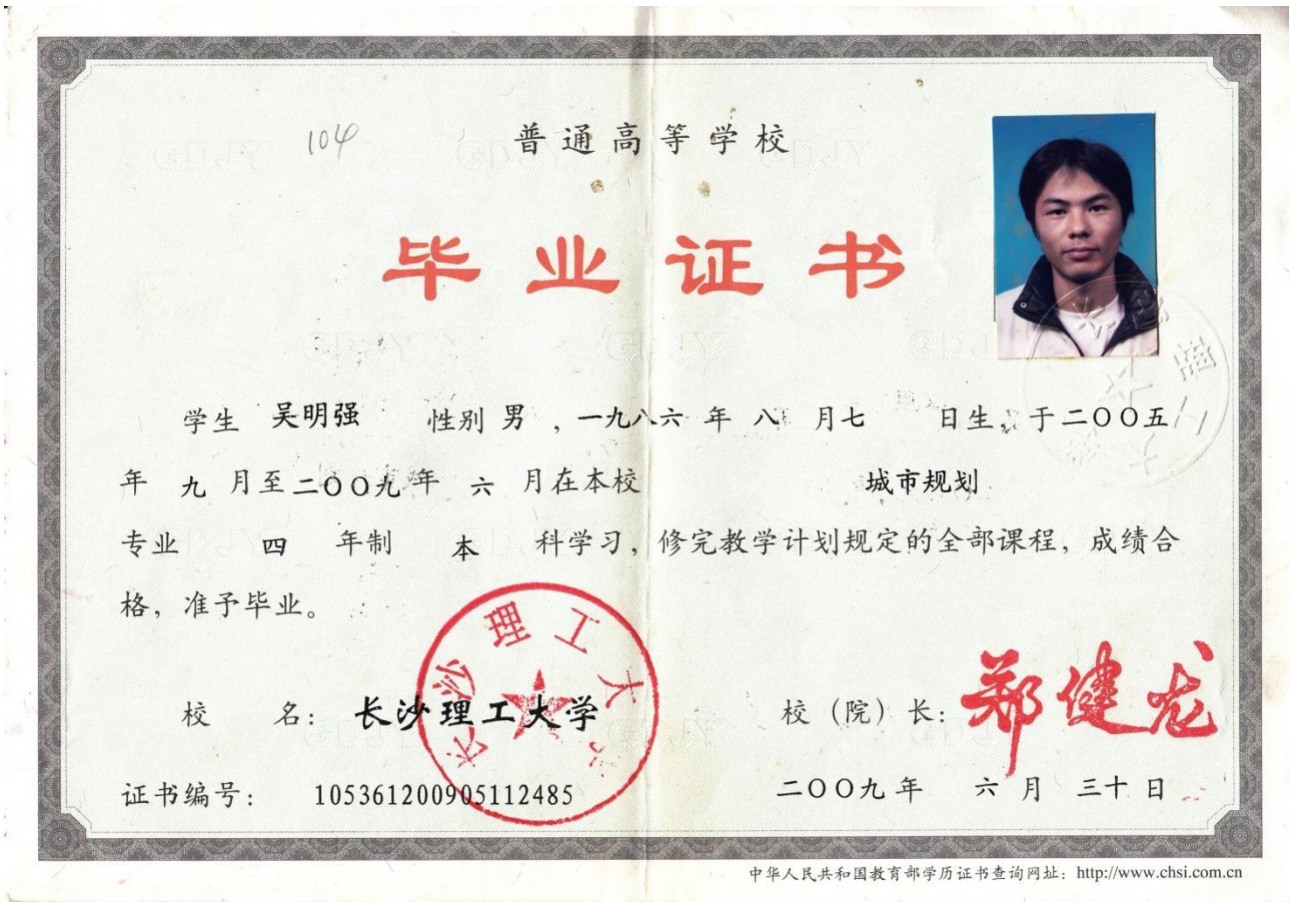 104
普通高等学校
毕业证书
学生 吴明强 性别 男 ，一九八六 年 八 月七 日生，于二〇〇五
年 九 月至二〇〇九年 六 月在本校 城市规划
专业 四 年制 本 科学习，修完教学计划规定的全部课程，成绩合
格，准予毕业。
长沙理工大学
校 名：长沙理工大学
校（院）长：郑健龙
证书编号： 105361200905112485
二〇〇九年 六 月 三十 日
中华人民共和国教育部学历证书查询网址：http://www.chsi.com.cn